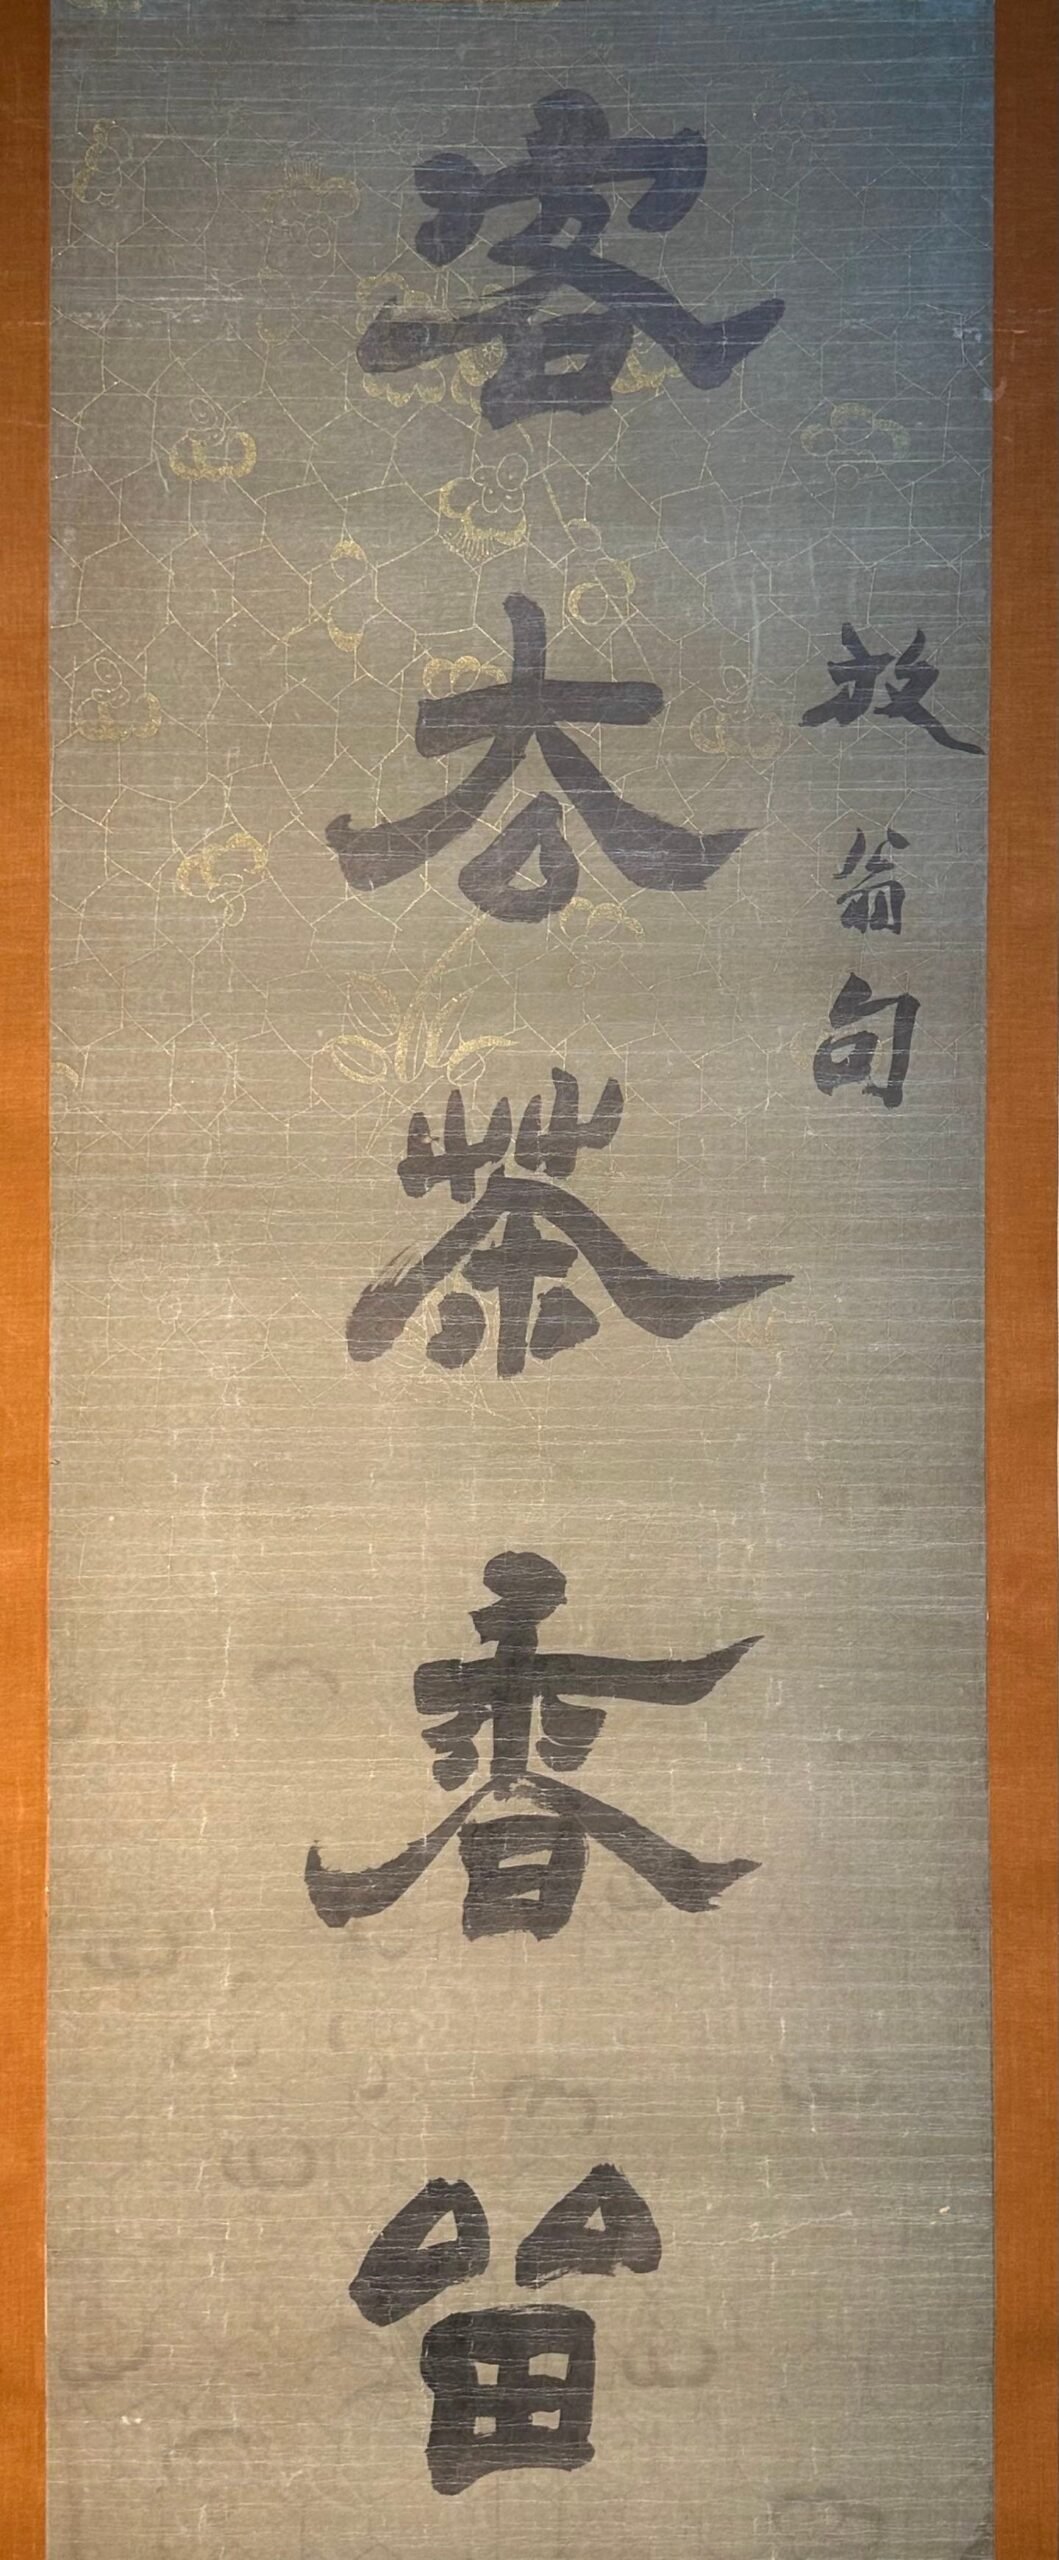 放翁句
客去茶香留